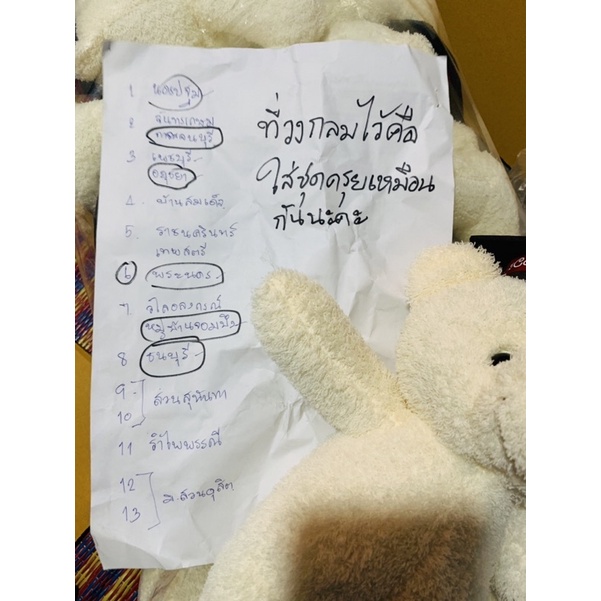 1 นครปฐม
2 จันทรเกษม
กาญจนบุรี
3 เพชรบุรี
อยุธยา
4. บ้านสมเด็จ
5. ราชนครินทร์
เทพสตรี
6 พระนคร
7 วไลยลงกรณ์
หมู่บ้านจอมบึง
8 ธนบุรี
9
10 สวนสุนันทา
11 รำไพพรรณี
12
13 ม.สวนดุสิต
ที่วงกลมไว้คือ
ใส่ชุดครุยเหมือน
กันนะคะ